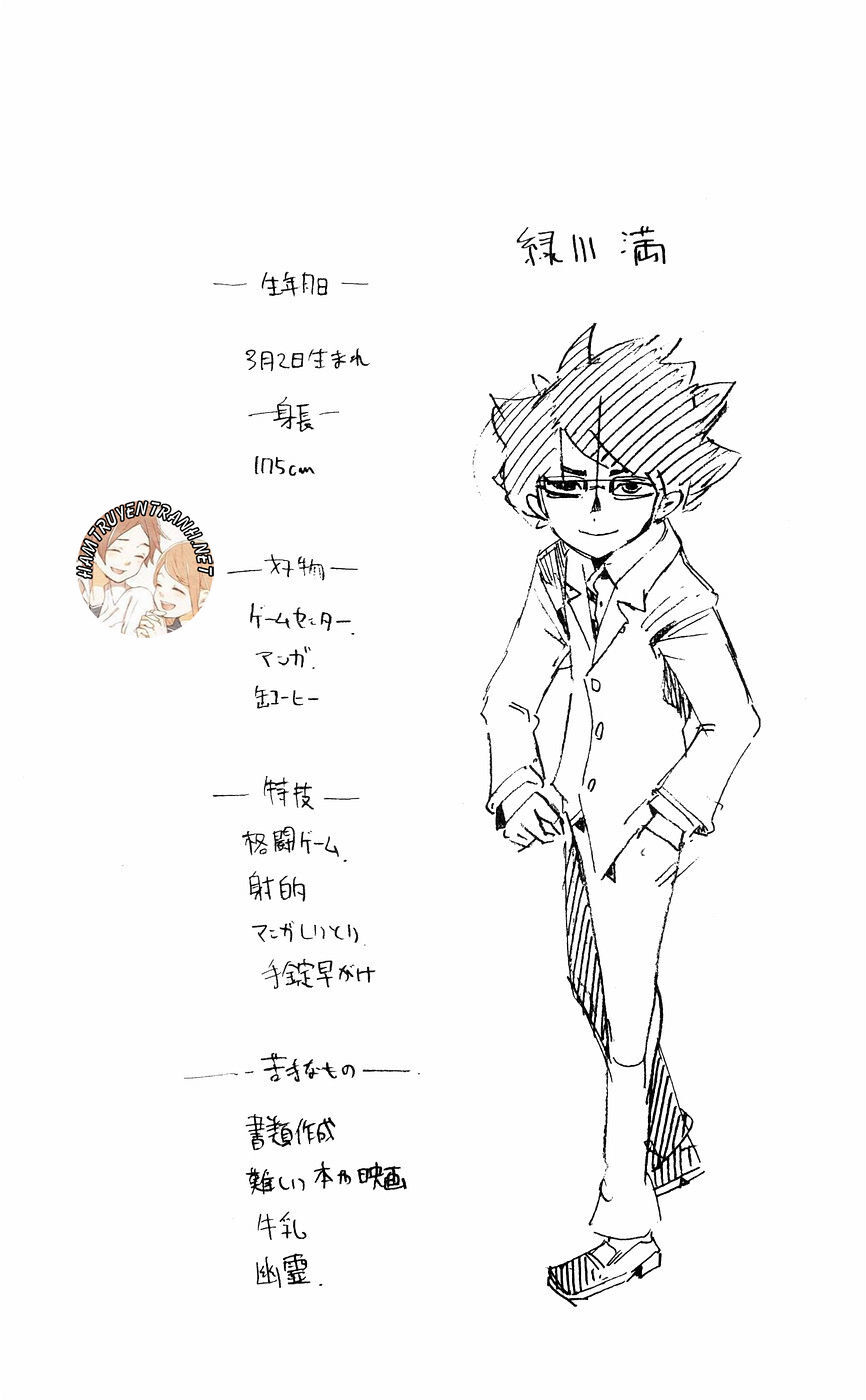 緑川 満
生年月日
3月2日生まれ
身長
175cm
好物
ゲームセンター.
マンガ.
缶コーヒー
特技
格闘ゲーム.
射的
マンガしりとり.
手錠早がけ
苦手なもの
書類作成
難しい本や映画
牛乳
幽霊.
HAMTRUYENTRANH.NET